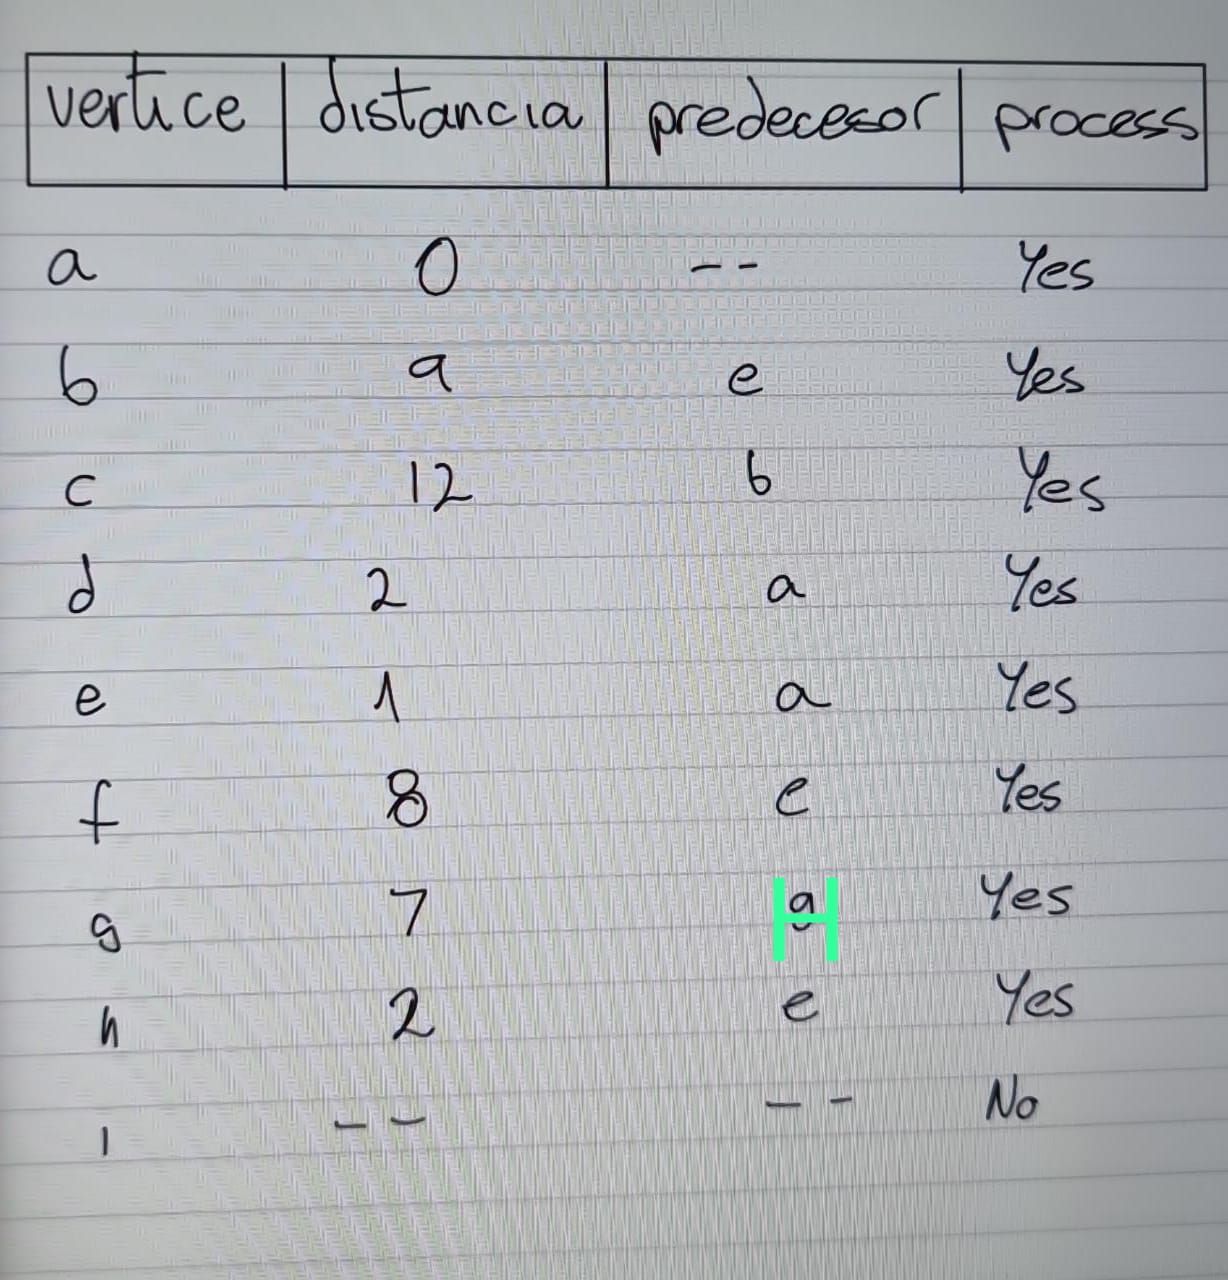 vertice distancia predecesor process
a 0 -- Yes
b 9 e Yes
c 12 b Yes
d 2 a Yes
e 1 a Yes
f 8 e Yes
g 7 H Yes
h 2 e Yes
i -- -- No